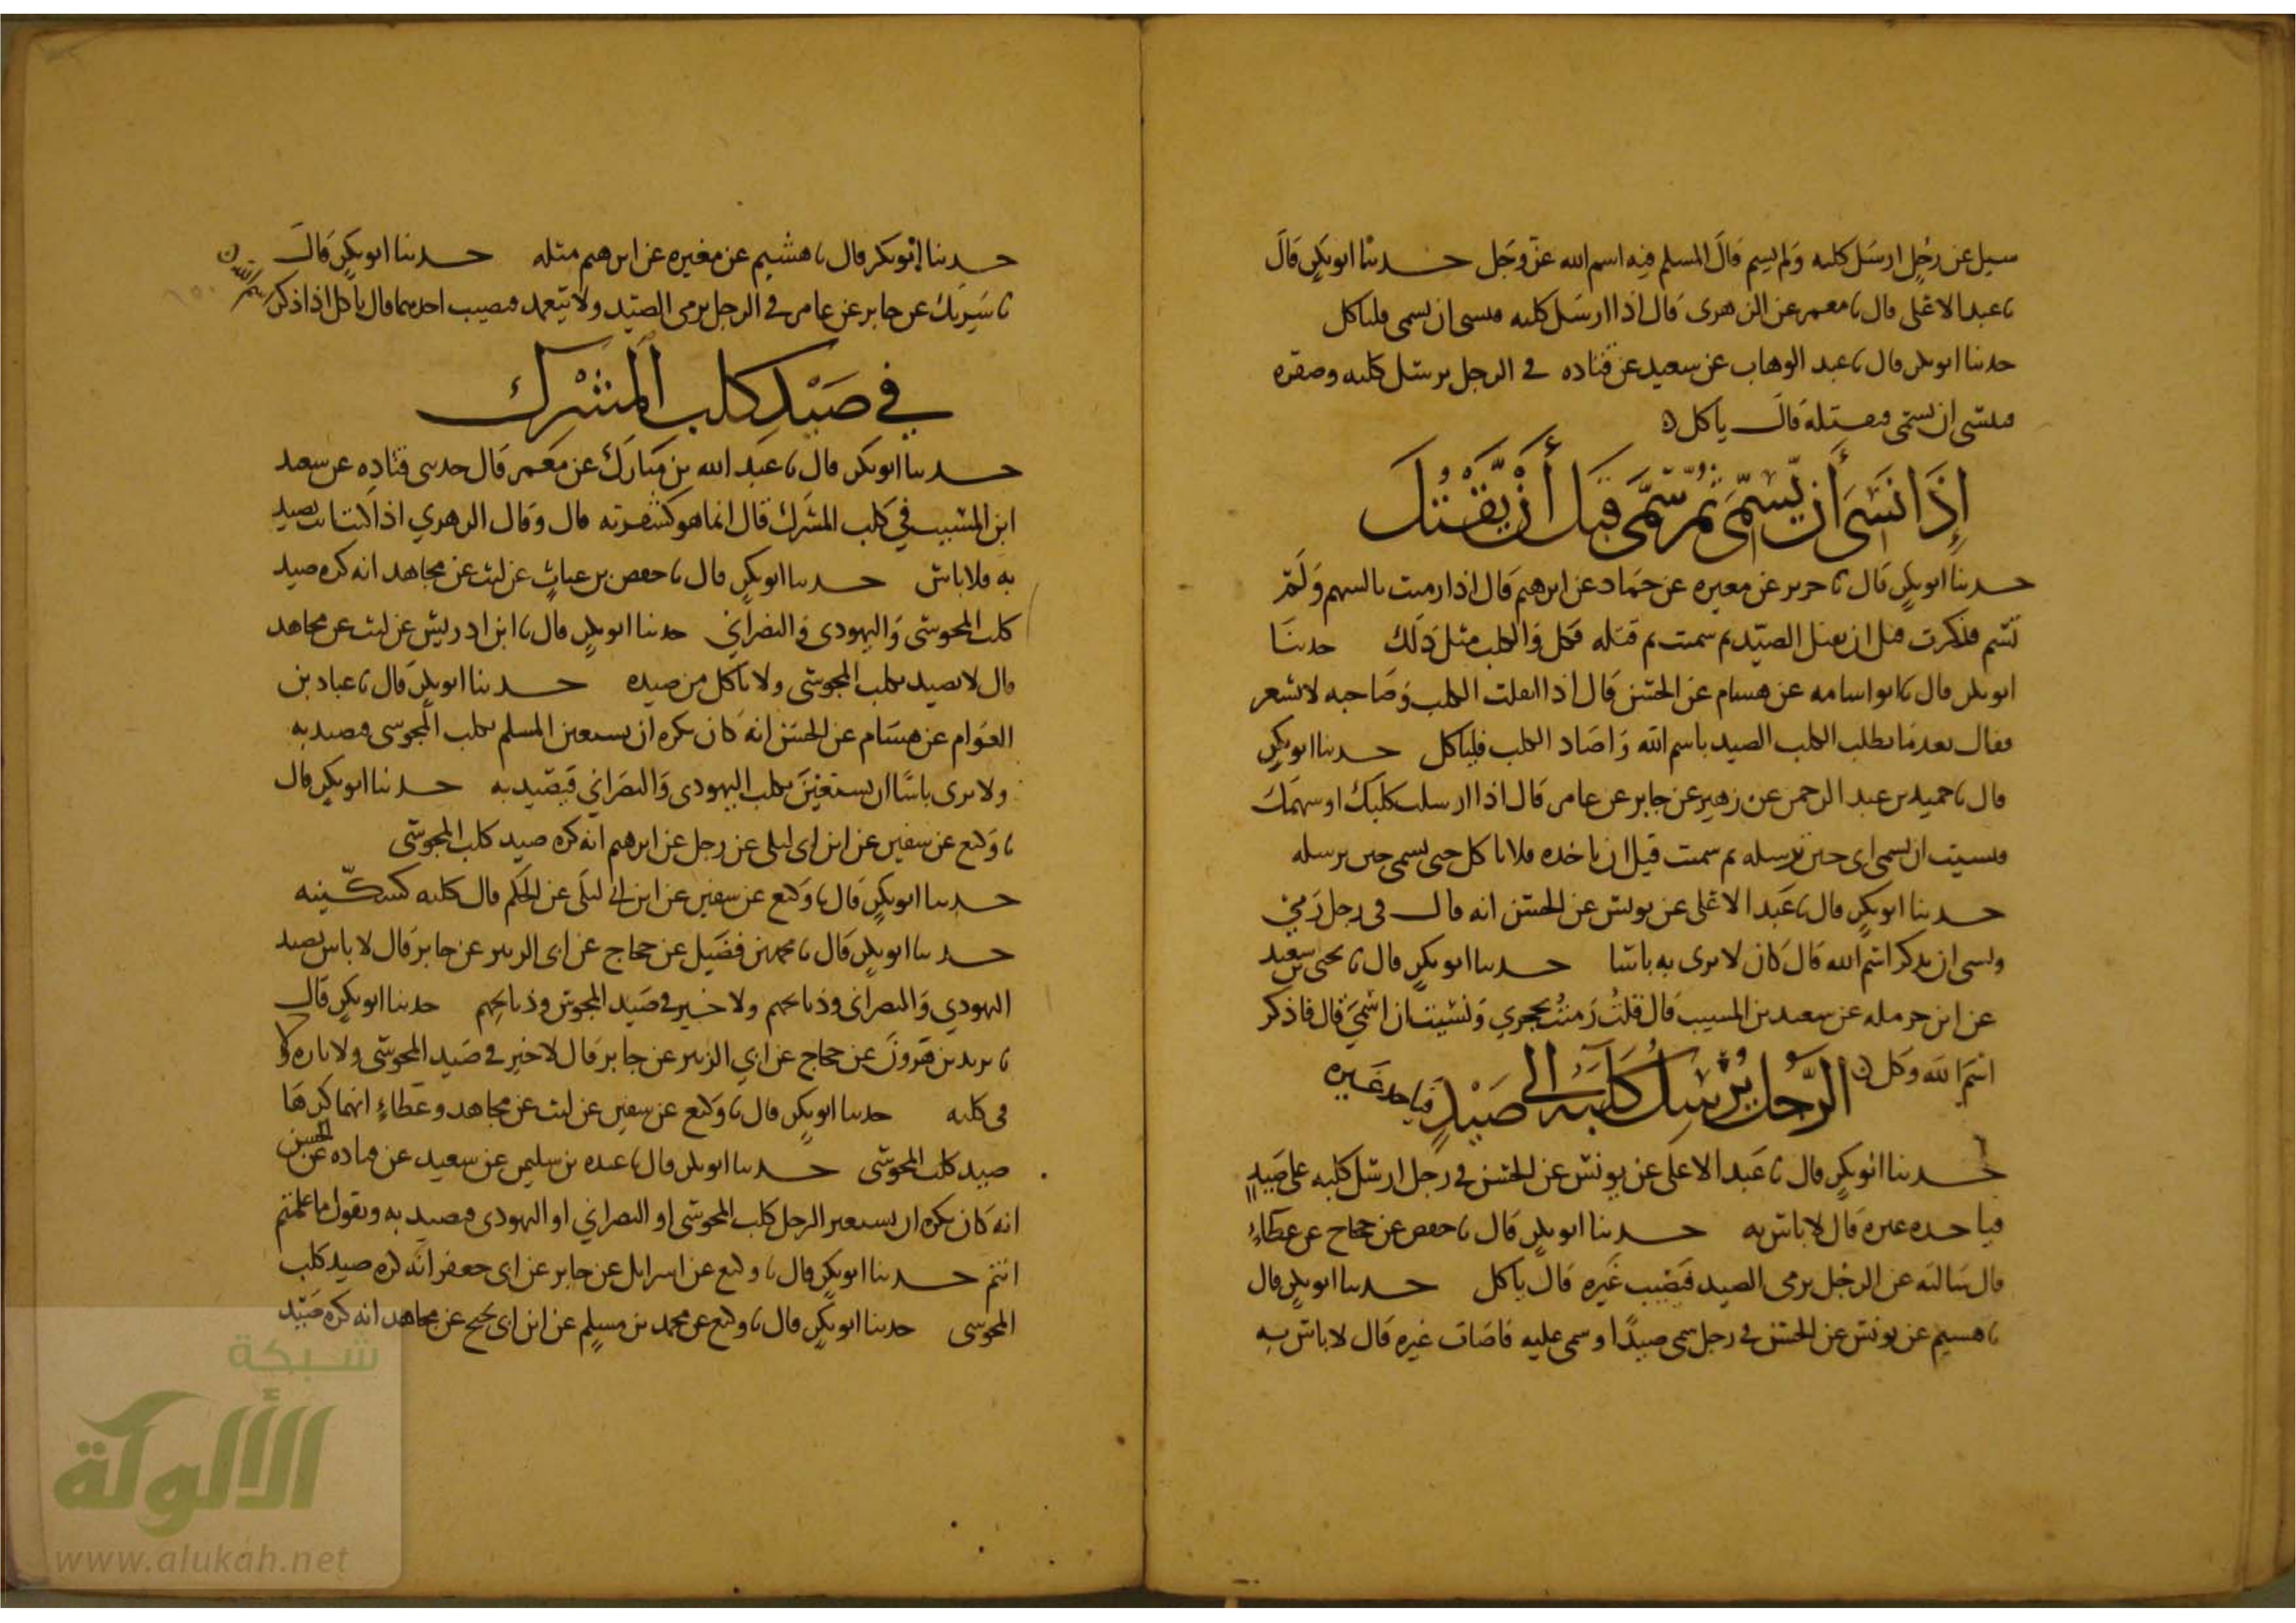 سيل عن رجل ارسل كلبه ولم يسم قال المسلم فيه اسم الله عز وجل حدثنا ابو بكر قال
نا عبد الاعلى قال نا معمر عن الزهرى قال اذا ارسل كلبه فنسى ان يسمى فلياكل
حدثنا ابو بكر قال نا عبد الوهاب عن سعيد عن قتاده فى الرجل يرسل كلبه وصقره
فينسى ان يسمى فيقتله قال ياكل
إذا نسى أن يسمى ثم سمى قبل أن يقتل
حدثنا ابو بكر قال نا جرير عن مغيره عن حماد عن ابرهيم قال اذا رميت بالسهم ولم
تسم فذكرت قبل ان يقتل الصيد ثم سميت ثم قتله فكل والكلب مثل ذلك حدثنا
ابو بكر قال نا ابو اسامه عن هشام عن الحسن قال اذا انفلت الكلب وصاحبه لا يشعر
فقال بعد ما يطلب الكلب الصيد باسم الله واصاد الكلب فلياكل حدثنا ابو بكر
قال نا حميد بن عبد الرحمن عن زهير عن جابر عن عامر قال اذا ارسلت كلبك او سهمك
فنسيت ان تسمى اى حين ترسله ثم سميت قبل ان ياخذه فلا تاكل حتى تسمى حين ترسله
حدثنا ابو بكر قال نا عبد الاعلى عن يونس عن الحسن انه قال فى رجل رمى
ونسى ان يذكر اسم الله قال كان لا يرى به باسا حدثنا ابو بكر قال نا يحيى بن سعيد
عن ابن حرمله عن سعيد بن المسيب قال قلت رميت بحجري ونسيت ان اسمي قال فاذكر
اسم الله وكل
الرجل يرسل كلبه الى صيد فياخذ غيره
حدثنا ابو بكر قال نا عبد الاعلى عن يونس عن الحسن فى رجل ارسل كلبه على صيد
فياخذه غيره قال لا باس به حدثنا ابو بكر قال نا حفص عن حجاج عن عطاء
قال سالته عن الرجل يرمى الصيد فيصيب غيره قال ياكل حدثنا ابو بكر قال
نا هشيم عن يونس عن الحسن فى رجل رمى صيدا وسمى عليه فاصاب غيره قال لا باس به
حدثنا ابو بكر قال نا هشيم عن مغيره عن ابرهيم مثله حدثنا ابو بكر قال
نا شريك عن جابر عن عامر فى الرجل يرمى الصيد ولا يتعمد فيصيب احدهما قال ياكل اذا ذكر
اسم الله
في صيد كلب المشرك
حدثنا ابو بكر قال نا عبد الله بن مبارك عن معمر قال حدثنى قتاده عن سعيد
ابن المسيب في كلب المشرك قال انما هو كشفرته قال وقال الزهري اذا كنت انت تصيد
به فلا باس حدثنا ابو بكر قال نا حفص بن غياث عن ليث عن مجاهد انه كره صيد
كلب المجوسى واليهودى والنصراني حدثنا ابو بكر قال نا ابن ادريس عن ليث عن مجاهد
قال لا تصيد بكلب المجوسى ولا تاكل من صيده حدثنا ابو بكر قال نا عباد بن
العوام عن هشام عن الحسن انه كان يكره ان يستعين المسلم بكلب المجوسى فيصيد به
ولا يرى باسا ان يستعين بكلب اليهودى والنصراني فيصيد به حدثنا ابو بكر قال
نا وكيع عن سفين عن ابن ابى ليلى عن رجل عن ابرهيم انه كره صيد كلب المجوسى
حدثنا ابو بكر قال نا وكيع عن سفين عن ابن ابي ليلى عن الحكم قال كلبه كسكينه
حدثنا ابو بكر قال نا محمد بن فضيل عن حجاج عن ابى الزبير عن جابر قال لا باس بصيد
اليهودي والنصرانى وذبائحهم ولا خير فى صيد المجوس وذبائحهم حدثنا ابو بكر قال
نا يزيد بن هرون عن حجاج عن ابي الزبير عن جابر قال لا خير فى صيد المجوسى ولا بازه ولا
فى كلبه حدثنا ابو بكر قال نا وكيع عن سفين عن ليث عن مجاهد وعطاء انهما كرها
صيد كلب المجوسى حدثنا ابو بكر قال نا عبده بن سليمن عن سعيد عن قتاده عن الحسن
انه كان يكره ان يستعير الرجل كلب المجوسى او النصراني او اليهودى فيصيد به ويقول ما علمتم
انتم حدثنا ابو بكر قال نا وكيع عن اسرايل عن جابر عن ابى جعفر انه كره صيد كلب
المجوسى حدثنا ابو بكر قال نا وكيع عن محمد بن مسلم عن ابن ابى نجيح عن مجاهد انه كره صيد
شبكة
الألوكة
www.alukah.net